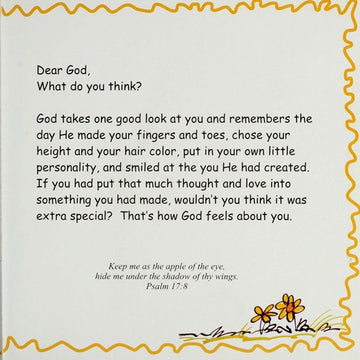 Dear God,
What do you think?
God takes one good look at you and remembers the
day He made your fingers and toes, chose your
height and your hair color, put in your own little
personality, and smiled at the you He had created.
If you had put that much thought and love into
something you had made, wouldn't you think it was
extra special?  That's how God feels about you.
Keep me as the apple of the eye,
hide me under the shadow of thy wings.
Psalm 17:8